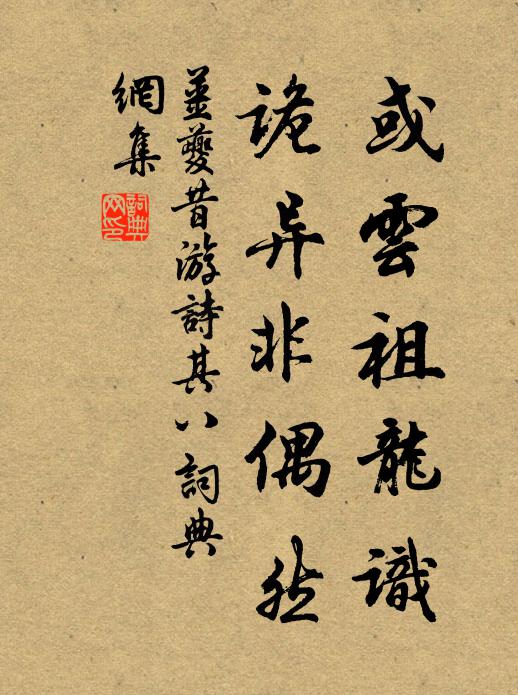 或雲祖龍識
詭异非偶然
姜夔昔游詩其八 詞典
網集
詞典
网印